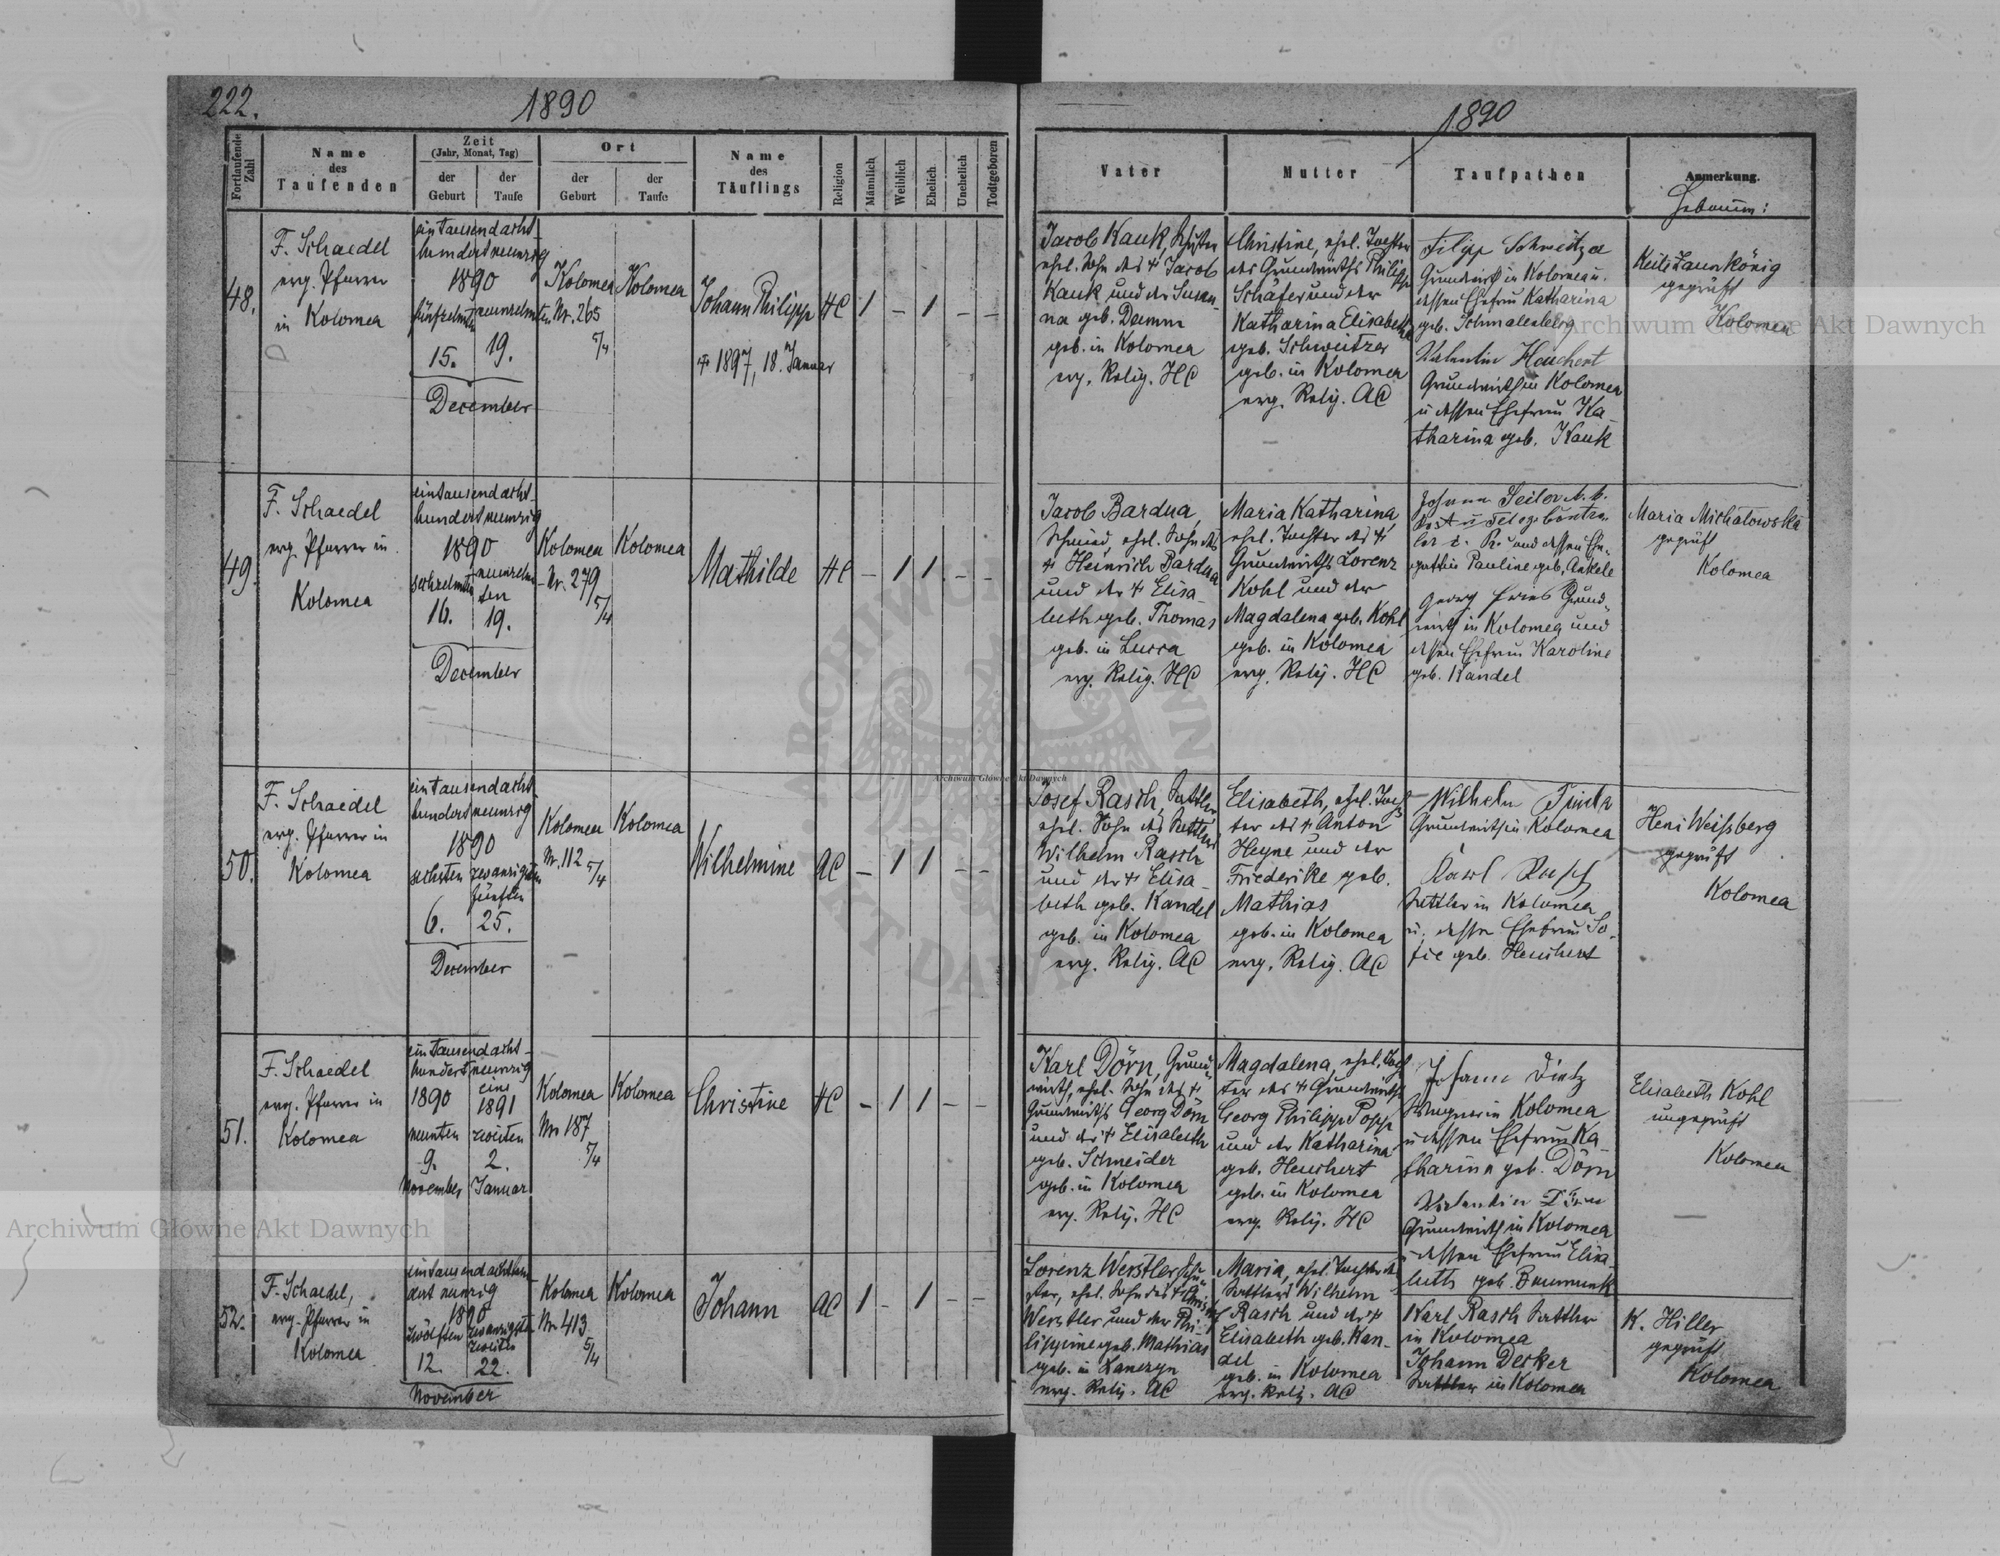 222.
1890
1890
Fortlaufende Zahl
Name
des
Taufenden
Zeit
(Jahr, Monat, Tag)
der
Geburt
der
Taufe
Ort
der
Geburt
der
Taufe
Name
des
Täuflings
Religion
Männlich
Weiblich
Ehelich
Unehelich
Todtgeboren
Vater
Mutter
Taufpathen
Anmerkung.
Hebamme:
48.
F. Schaedel
evg. Pfarrer
in Kolomea
eintausendacht-
hundertneunzig
1890
fünfzehnten
neunzehnten
15.
19.
December
Kolomea
Nr. 265
5/4
Kolomea
Johann Philipp
+ 1897, 18. Januar
HC
1 – 1 – –
Jacob Kauk
ehel. Sohn des + Jacob
Kauk und der Susan-
na geb. Damm
geb. in Kolomea
evg. Relig. HC
Christine, ehel. Tochter
des Grundwirths Philipp
Schäfer und der
Katharina Elisabeth
geb. Schweitzer
geb. in Kolomea
evg. Relig. AC
Filipp Schweitzer
Grundwirth in Kolomea u.
dessen Ehefrau Katharina
geb. Schmalenberg
Valentin Heuchert
Grundwirth in Kolomea
u dessen Ehefrau Ka-
tharina geb. Kauk
Zaunkönig
geprüft
Kolomea
49.
F. Schaedel
evg. Pfarrer in
Kolomea
eintausendacht-
hundertneunzig
1890
sechzehnten
neunzehn-
ten
16.
19.
December
Kolomea
Nr. 279
5/4
Kolomea
Mathilde
HC
– 1 1 – –
Jacob Bardua,
Schmied, ehel. Sohn des
+ Heinrich Bardua
und der + Elisa-
beth geb. Thomas
geb. in Lucca
evg. Relig. HC
Maria Katharina,
ehel. Tochter des +
Grundwirths Lorenz
Kohl und der
Magdalena geb. Kohl
geb. in Kolomea
evg. Relig. HC
Johann Seiler k. k.
und dessen Ehe-
gattin Pauline geb. Ankele
Georg Fries Grund-
wirth in Kolomea und
dessen Ehefrau Karoline
geb. Kandel
Maria Michalowska
geprüft
Kolomea
50.
F. Schaedel
evg. Pfarrer in
Kolomea
eintausendacht-
hundertneunzig
1890
sechsten
zwanzigsten
fünften
6.
25.
December
Kolomea
Nr. 112
5/4
Kolomea
Wilhelmine
AC
– 1 1 – –
Josef Rasch, Sattler
ehel. Sohn des Sattlers
Wilhelm Rasch
und der + Elisa-
beth geb. Kandel
geb. in Kolomea
evg. Relig. AC
Elisabeth, ehel. Toch-
ter des + Anton
Heyne und der
Friederike geb.
Mathias
geb. in Kolomea
evg. Relig. AC
Wilhelm
Grundwirth in Kolomea
Karl Rasch
Sattler in Kolomea
u. dessen Ehefrau So-
fie geb. Heuchert
Heni Weissberg
geprüft
Kolomea
51.
F. Schaedel
evg. Pfarrer in
Kolomea
eintausendacht-
hundertneunzig
eins
1890
1891
neunten
zweiten
9.
2.
November
Januar
Kolomea
Nr 187
5/4
Kolomea
Christine
HC
– 1 1 – –
Karl Dörn, Grund-
wirth, ehel. Sohn des +
Grundwirths Georg Dörn
und der + Elisabeth
geb. Schneider
geb. in Kolomea
evg. Relig. HC
Magdalena, ehel. Toch-
ter des + Grundwirths
Georg Philipp Popp
und der Katharina
geb. Heuchert
geb. in Kolomea
evg. Relig. HC
Johann Dietz
Wagner in Kolomea
u dessen Ehefrau Ka-
tharina geb. Dörn
Valentin Dörn
Grundwirth in Kolomea
dessen Ehefrau Elisa-
beth geb.
Elisabeth Kohl
ungeprüft
Kolomea
52.
F. Schaedel,
evg. Pfarrer in
Kolomea
eintausendachthun-
dert neunzig
1890
zwölften
zwanzigsten
zweiten
12.
22.
November
Kolomea
Nr 413
5/4
Kolomea
Johann
AC
1 – 1 – –
Lorenz Werstler
ehel. Sohn des +
Werstler und der Phi-
lippine geb. Mathias
geb. in Kaneryn
evg. Relig. AC
Maria, ehel. Tochter d.
Sattlers Wilhelm
Rasch und der +
Elisabeth geb. Kan-
del
geb. in Kolomea
evg. Relig. AC
Karl Rasch Sattler
in Kolomea
Johann Decker
Sattler in Kolomea
K. Hiller
geprüft
Kolomea
Archiwum Główne Akt Dawnych
Archiwum Główne Akt Dawnych
Archiwum Główne Akt Dawnych